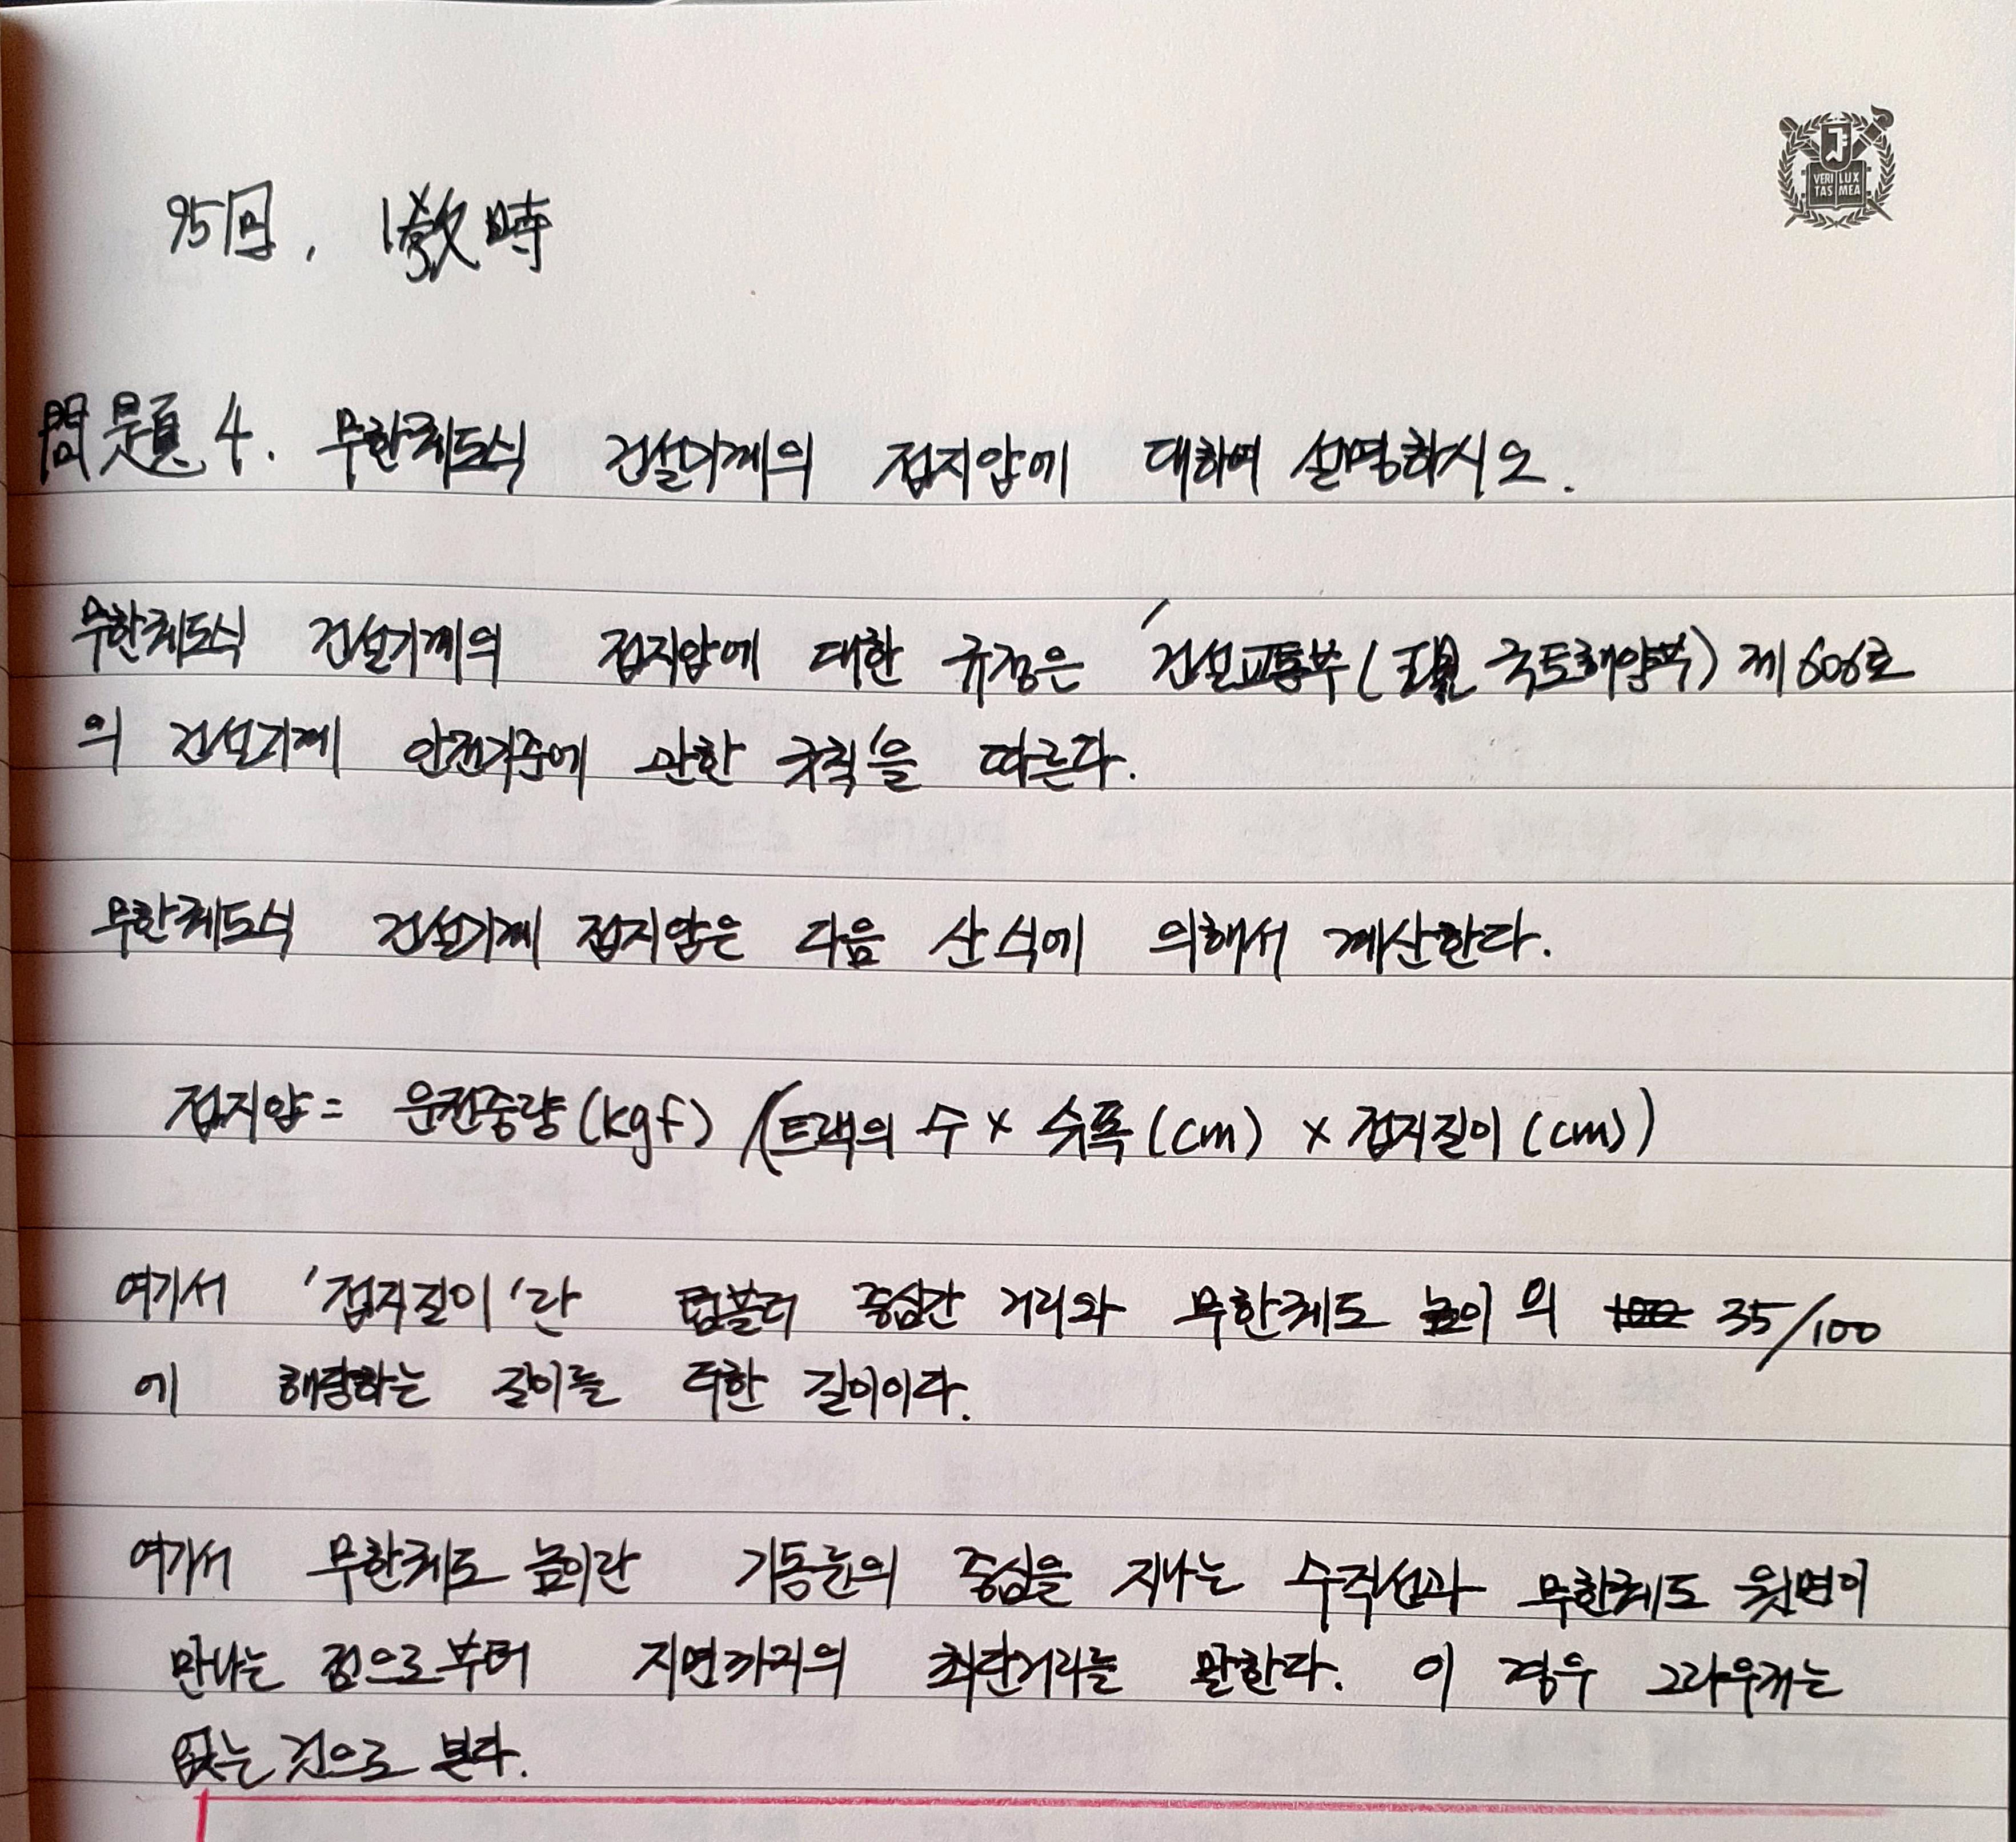 VERI LUX
TAS MEA
95回, 1敎時
問題 4. 무한궤도식 건설기계의 접지압에 대하여 설명하시오.
무한궤도식 건설기계의 접지압에 대한 규정은 '건설교통부( 국토해양부) 제606호
의 건설기계 안전기준에 관한 규칙'을 따른다.
무한궤도식 건설기계 접지압은 다음 산식에 의해서 계산한다.
접지압 = 운전중량(kgf) /(트랙의 수 × 슈폭(cm) × 접지길이(cm))
여기서 '접지길이'란 텀블러 중심간 거리와 무한궤도 높이의 35/100
에 해당하는 길이를 더한 길이이다.
여기서 무한궤도 높이란 기동륜의 중심을 지나는 수직선과 무한궤도 윗면이
만나는 점으로부터 지면까지의 최단거리를 말한다. 이 경우 그라우저는
없는 것으로 본다.